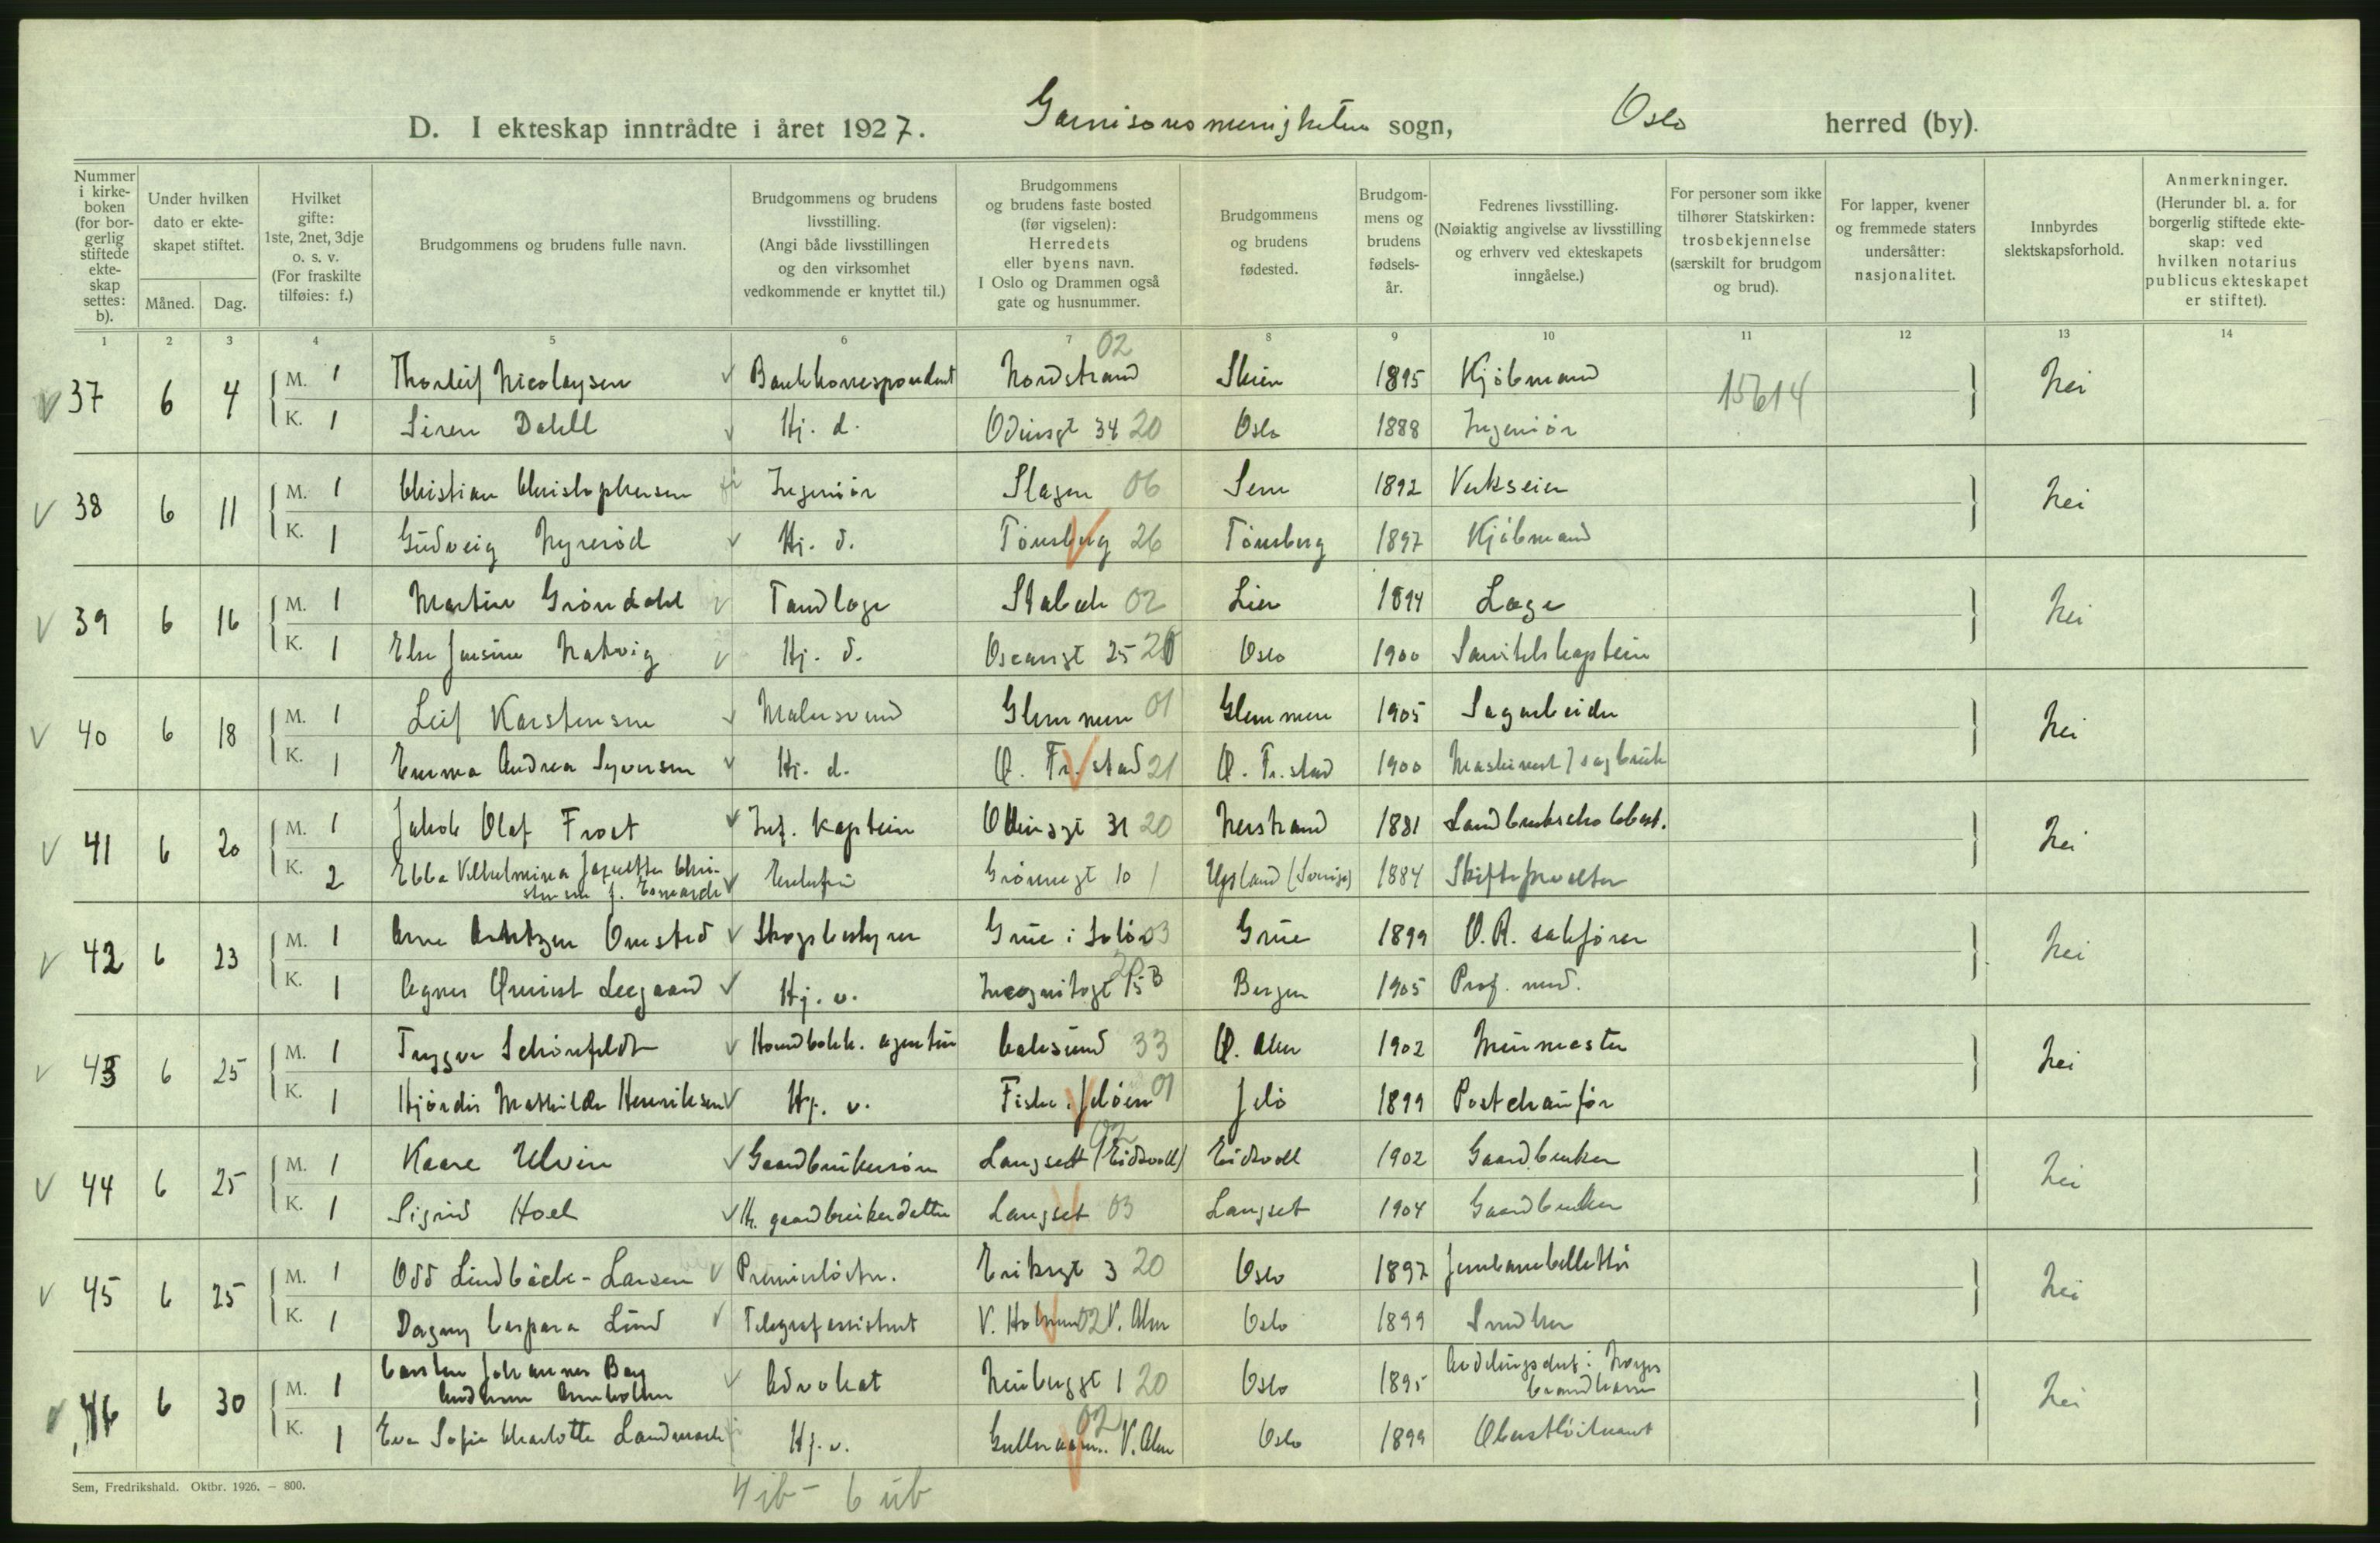 D. I ekteskap inntrådte i året 1927. Garnisonsmenigheten sogn, Oslo herred (by).
Nummer i kirkeboken (for borgerlig stiftede ekteskap settes: b).
Under hvilken dato er ekteskapet stiftet.
Måned. Dag.
Hvilket gifte: 1ste, 2net, 3dje o. s. v. (For fraskilte tilføies: f.)
Brudgommens og brudens fulle navn.
Brudgommens og brudens livsstilling. (Angi både livsstillingen og den virksomhet vedkommende er knyttet til.)
Brudgommens og brudens faste bosted (før vigselen): Herredets eller byens navn. I Oslo og Drammen også gate og husnummer.
Brudgommens og brudens fødested.
Brudgommens og brudens fødselsår.
Fedrenes livsstilling. (Nøiaktig angivelse av livsstilling og erhverv ved ekteskapets inngåelse.)
For personer som ikke tilhører Statskirken: trosbekjennelse (særskilt for brudgom og brud).
For lapper, kvener og fremmede staters undersåtter: nasjonalitet.
Innbyrdes slektskapsforhold.
Anmerkninger. (Herunder bl. a. for borgerlig stiftede ekteskap: ved hvilken notarius publicus ekteskapet er stiftet).
1 2 3 4 5 6 7 8 9 10 11 12 13 14
37 6 4 M. 1 Thorleif Nicolaysen Bankkorrespondent Nordstrand 02 Skien 1895 Kjøbmand 15614 Nei
K. 1 Siren Dahll Hj. d. Odinsgt 34 20 Oslo 1888 Ingeniør
38 6 11 M. 1 Christian Christophersen Ingeniør Slagen 06 Sem 1892 Verkseier Nei
K. 1 Gudveig Hj. d. Tønsberg 26 Tønsberg 1897 Kjøbmand
39 6 16 M. 1 Martin Grøndahl Tandlæge Stabæk 02 Lier 1894 Læge Nei
K. 1 Else Jensine Natvig Hj. d. Oscarsgt 25 20 Oslo 1900 Sanitetskaptein
40 6 18 M. 1 Leif Karstensen Malersvend Glemmen 01 Glemmen 1905 Sagarbeider Nei
K. 1 Emma Andrea Syversen Hj. d. Ø. Fr.stad 21 Ø. Fr.stad 1900 Maskinist / sagbruk
41 6 20 M. 1 Jakob Olaf Frost Inf. kaptein Odinsgt 31 20 Nerstrand 1881 Landbruksskolebest. Nei
K. 2 Ebba Vilhelmina Chri-
stensen f. Enkefru Grønnegt 10 1 (Sverige) 1884 Skifteforvalter
42 6 23 M. 1 Arne Arntzen Omsted Skogbestyrer Grue i Solør 03 Grue 1899 O.R. sakfører Nei
K. 1 Agnes Qvinist Leegaard Hj. v. Incognitogt 15 B 20 Bergen 1905 Prof. med.
43 6 25 M. 1 Trygve Schönfeldt Haandbokh. agentur Aalesund 33 Ø. Aker 1902 Murmester Nei
K. 1 Hjørdis Mathilde Henriksen Hj. v. Jeløen 01 Jelø 1899 Postchauffør
44 6 25 M. 1 Kaare Ulvin Gaardbrukersøn Langset (Eidsvoll) 02 Eidsvoll 1902 Gaardbruker Nei
K. 1 Sigrid Hoel Hj. gaardbrukerdatter Langset 03 Langset 1904 Gaardbruker
45 6 25 M. 1 Odd Lindbäck-Larsen Premierløitn. Eriksgt 3 20 Oslo 1897 Jernbanebillettør Nei
K. 1 Dagny Caspara Lund Telegrafassistent V. Holmen 02 V. Aker Oslo 1899 Snedker
46 6 30 M. 1 Carsten Johannes Bay
Andersen Arnholm Advokat Neuberggt 1 20 Oslo 1895 Avdelingschef i Norges
brandkasse Nei
K. 1 Eva Sofie Charlotte Landmark Hj. v. V. Aker 02 Oslo 1899 Oberstløitnant
Sem, Fredrikshald. Oktbr. 1926. – 800.
4 ib – 6 ub